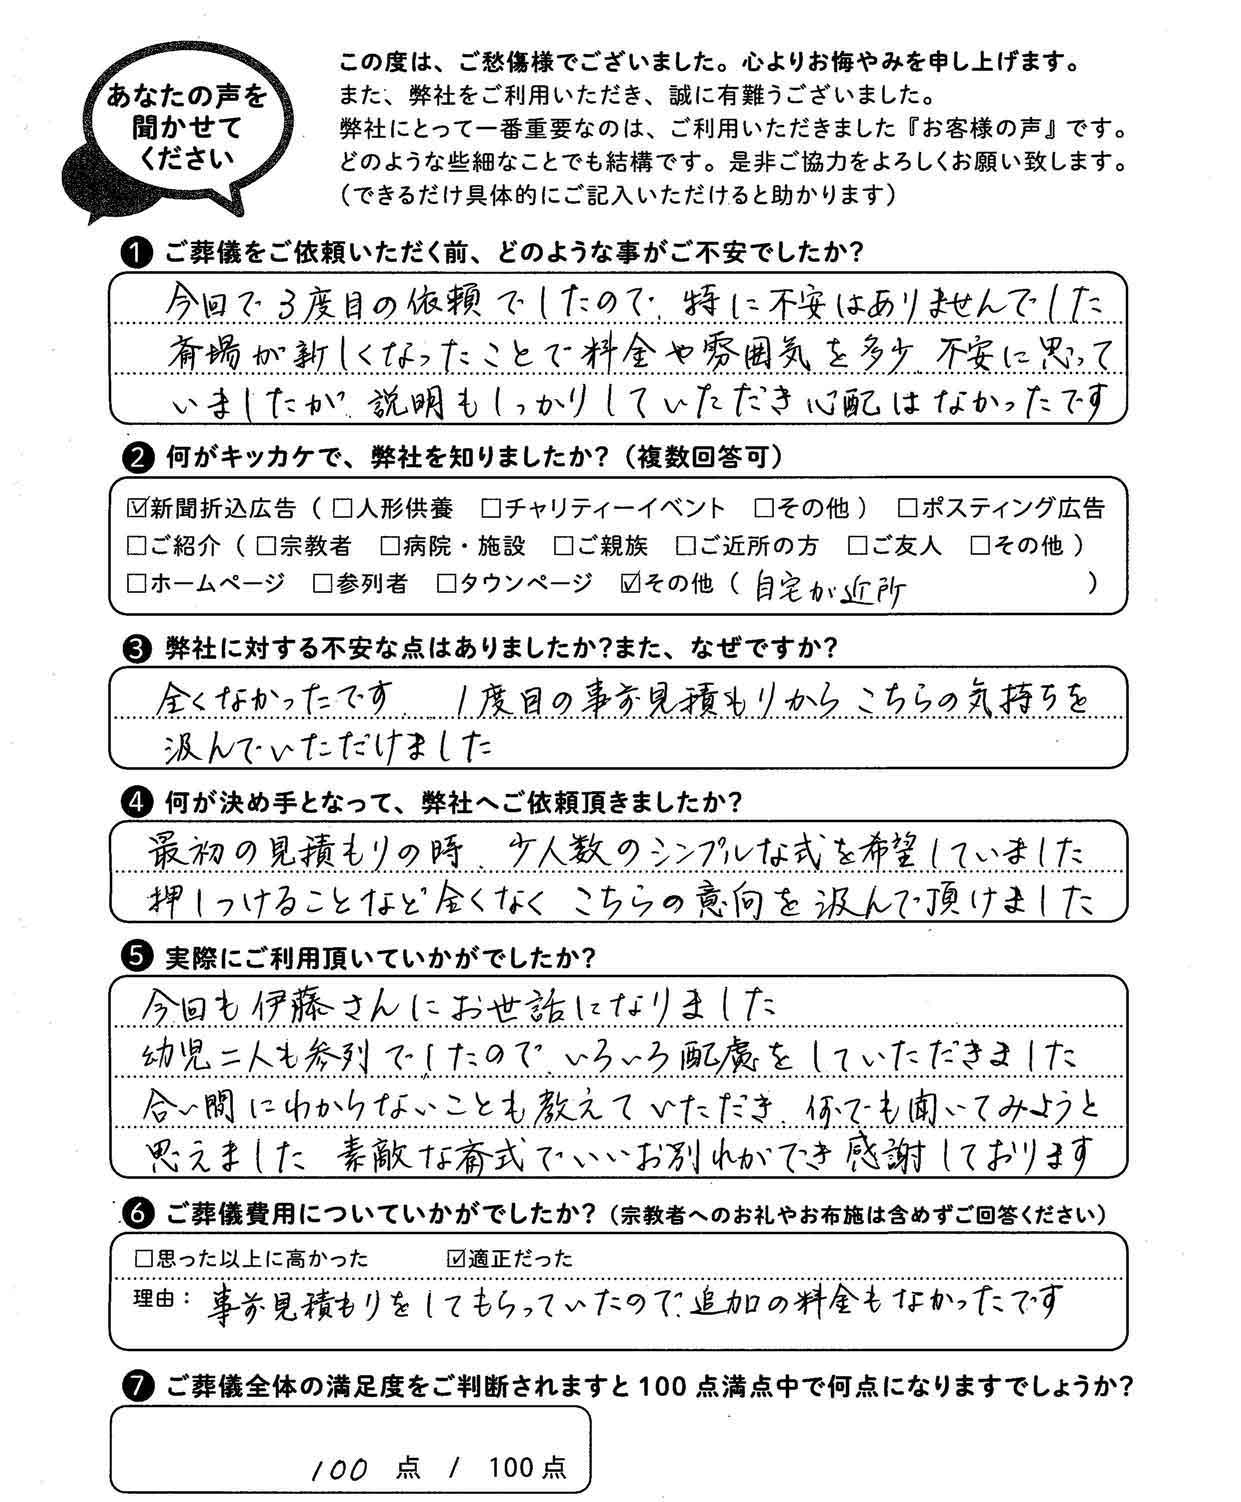 あなたの声を
聞かせて
ください
この度は、ご愁傷様でございました。心よりお悔やみを申し上げます。
また、弊社をご利用いただき、誠に有難うございました。
弊社にとって一番重要なのは、ご利用いただきました『お客様の声』です。
どのような些細なことでも結構です。是非ご協力をよろしくお願い致します。
（できるだけ具体的にご記入いただけると助かります）
❶ ご葬儀をご依頼いただく前、どのような事がご不安でしたか？
今回で3度目の依頼でしたので、特に不安はありませんでした
斎場が新しくなったことで料金や雰囲気を多少、不安に思って
いましたが、説明もしっかりしていただき心配はなかったです
❷ 何がキッカケで、弊社を知りましたか？（複数回答可）
☑新聞折込広告（ □人形供養 □チャリティーイベント □その他 ） □ポスティング広告
□ご紹介（ □宗教者 □病院・施設 □ご親族 □ご近所の方 □ご友人 □その他 ）
□ホームページ □参列者 □タウンページ ☑その他（ 自宅が近所 ）
❸ 弊社に対する不安な点はありましたか？また、なぜですか？
全くなかったです、1度目の事前見積もりからこちらの気持ちを
汲んでいただけました
❹ 何が決め手となって、弊社へご依頼頂きましたか？
最初の見積もりの時、少人数のシンプルな式を希望していました
押しつけることなど全くなく こちらの意向を汲んで頂けました
❺ 実際にご利用頂いていかがでしたか？
今回も伊藤さんにお世話になりました
幼児二人も参列でしたので、いろいろ配慮をしていただきました
合い間にわからないことも教えていただき、何でも聞いてみようと
思えました 素敵な斎式でいいお別れができ感謝しております
❻ ご葬儀費用についていかがでしたか？（宗教者へのお礼やお布施は含めずご回答ください）
□思った以上に高かった ☑適正だった
理由： 事前見積もりをしてもらっていたので、追加の料金もなかったです
❼ ご葬儀全体の満足度をご判断されますと100点満点中で何点になりますでしょうか？
100 点 / 100点